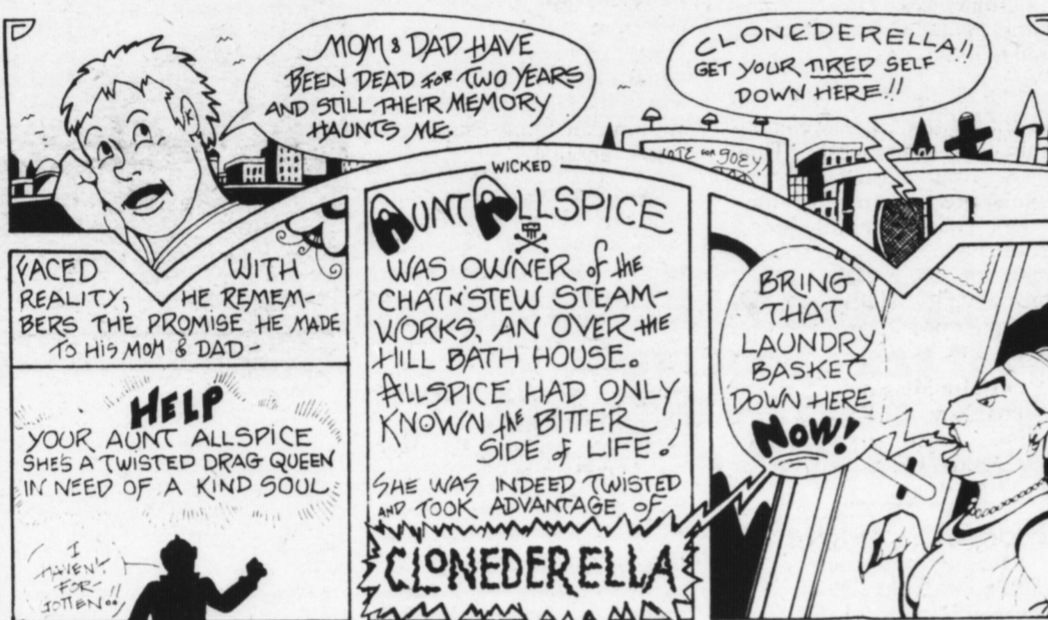 MOM & DAD HAVE
BEEN DEAD FOR TWO YEARS
AND STILL THEIR MEMORY
HAUNTS ME.
CLONEDERELLA!!
GET YOUR TIRED SELF
DOWN HERE!!
VOTE FOR JOEY!
FACED WITH
REALITY, HE REMEM-
BERS THE PROMISE HE MADE
TO HIS MOM & DAD-
HELP
YOUR AUNT ALLSPICE
SHE'S A TWISTED DRAG QUEEN
IN NEED OF A KIND SOUL
I
HAVEN'T
FOR-
GOTTEN!!
WICKED
AUNT ALLSPICE
WAS OWNER of the
CHAT N' STEW STEAM-
WORKS, AN OVER the
HILL BATH HOUSE.
ALLSPICE HAD ONLY
KNOWN the BITTER
SIDE of LIFE!
SHE WAS INDEED TWISTED
AND TOOK ADVANTAGE OF
CLONEDERELLA
BRING
THAT
LAUNDRY
BASKET
DOWN HERE
NOW!